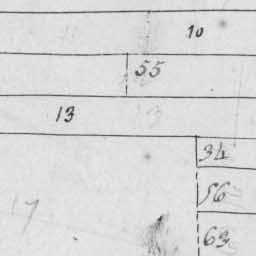 10
55
13
34
56
17
63